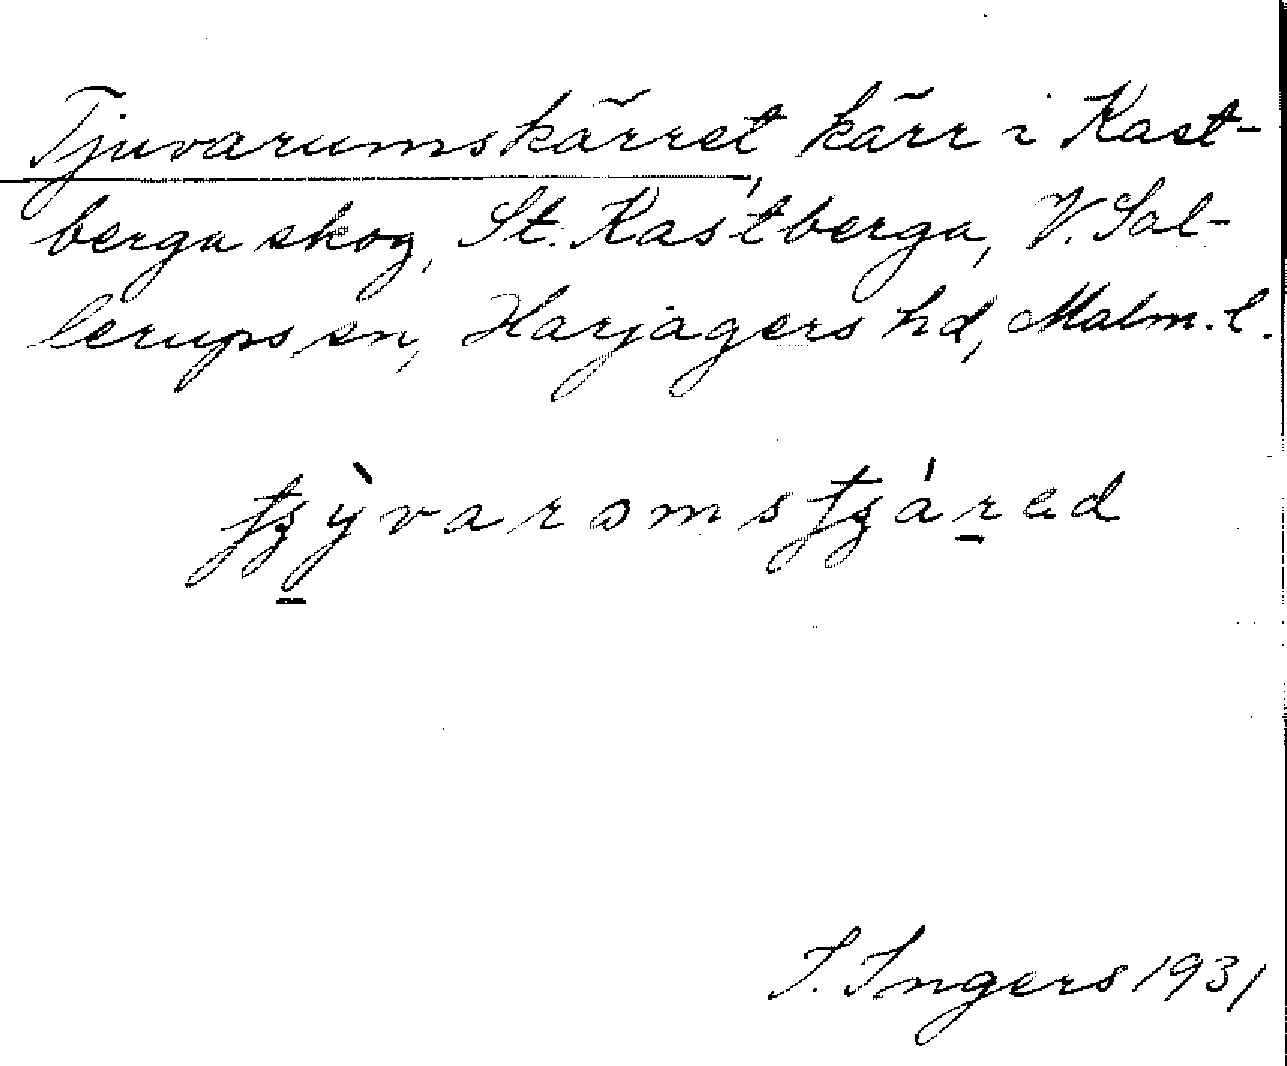 Tjuvarumskärret, kärr i Kast-
berga skog, St. Kastberga, V. Sal-
lerups sn, Harjagers hd, Malm. l.
I. Ingers 1931